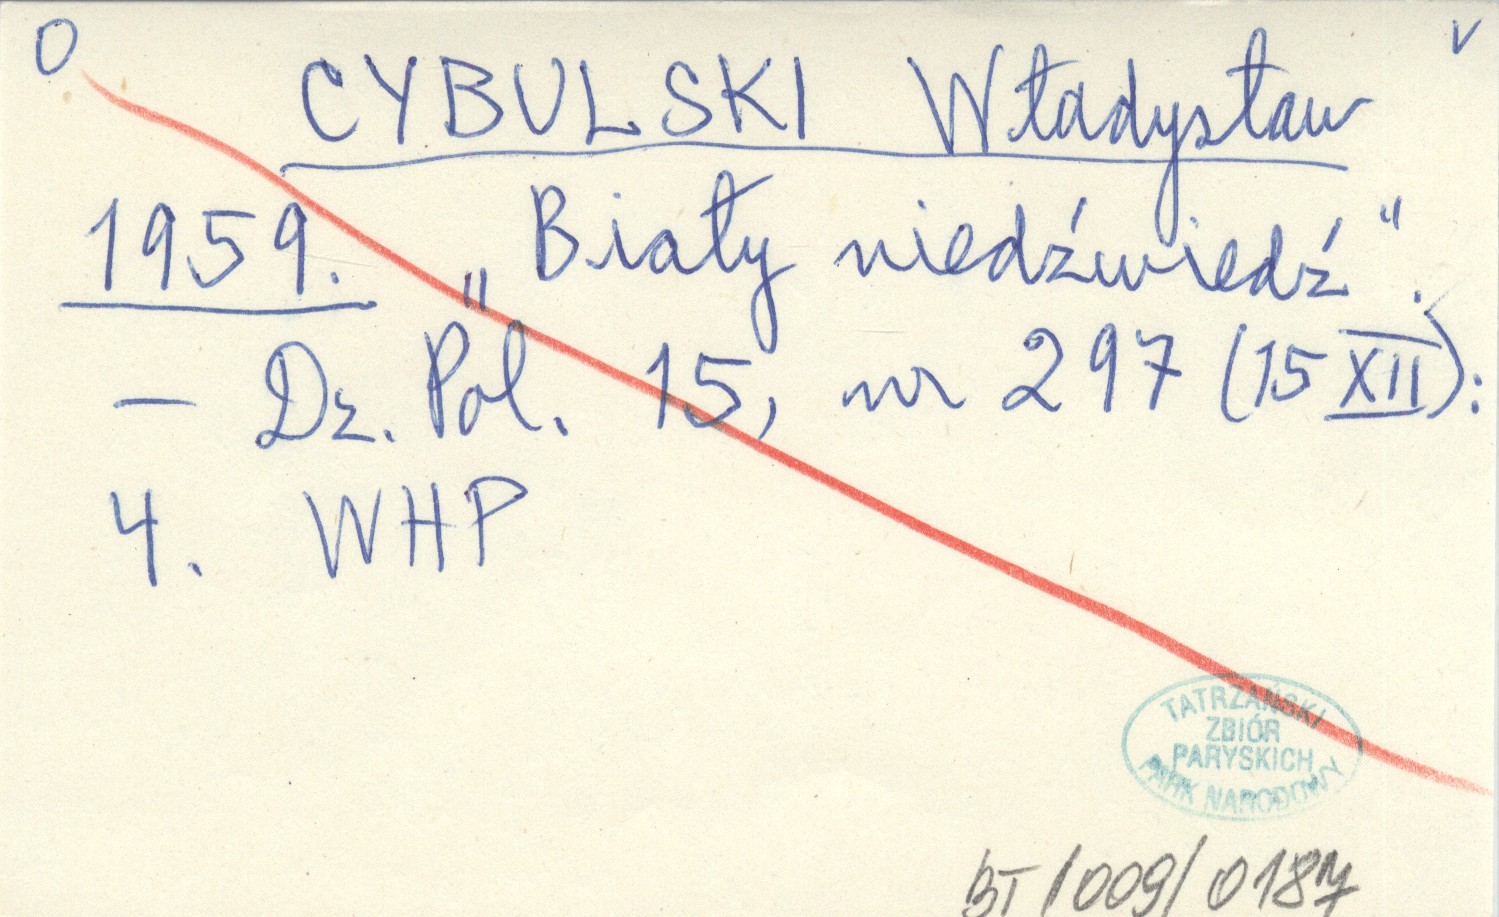 O
v
CYBULSKI Władysław
1959. „Biały niedźwiedź".
— Dz. Pol. 15, nr 297 (15 XII):
4. WHP
TATRZAŃSKI
ZBIÓR
PARYSKICH
PARK NARODOWY
BT/009/0187